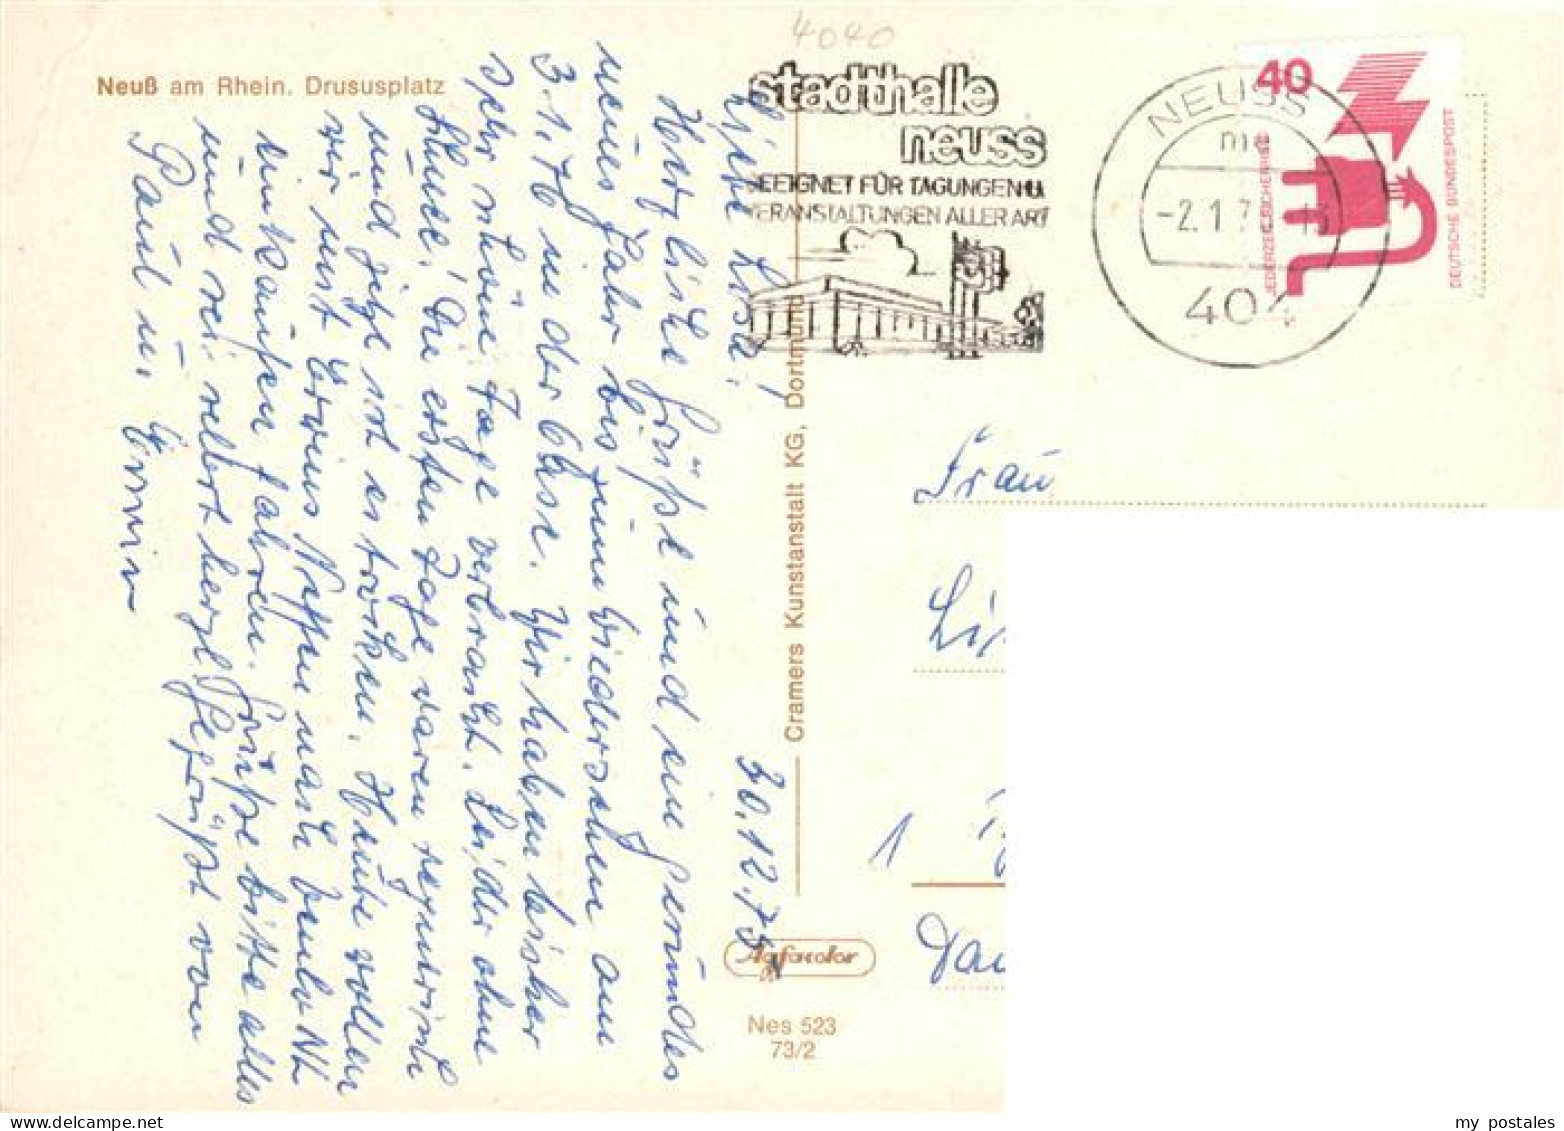 4040
Neuß am Rhein. Drususplatz
stadthalle
neuss
GEEIGNET FÜR TAGUNGEN U.
VERANSTALTUNGEN ALLER ART
NEUSS
-2.1.7
404
40
JEDERZEIT SICHERHEIT
DEUTSCHE BUNDESPOST
30.12.75
Liebe Lisa!
Herzliche Grüße und ein gesundes
neues Jahr bis zum Wiedersehen am
3.1.76 in der Oase. Wir haben bisher
sehr schöne Tage verbracht. Leider ohne
Schnee! Die ersten Tage waren regnerisch
und jetzt ist es trocken. Heute wollen
wir mit Erwins Neffen nach Venlo NL
einkaufen fahren. Grüße bitte alles
und sei selbst herzl. gegrüßt von
Paul u. Erwin
Cramers Kunstanstalt KG, Dortmund
Agfacolor
Nes 523
73/2
Frau
1
my postales